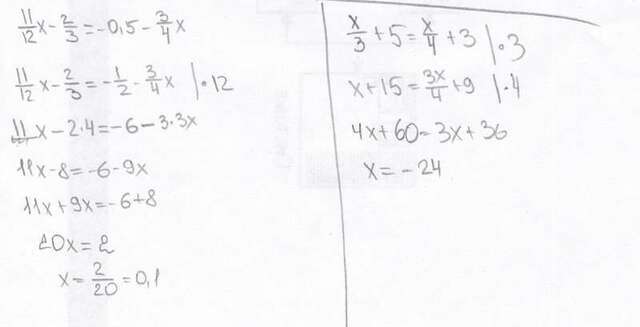 11/12 x - 2/3 = -0,5 - 3/4 x
11/12 x - 2/3 = -1/2 - 3/4 x | · 12
11x - 2·4 = -6 - 3·3x
11x - 8 = -6 - 9x
11x + 9x = -6 + 8
20x = 2
x = 2/20 = 0,1
x/3 + 5 = x/4 + 3 | · 3
x + 15 = 3x/4 + 9 | · 4
4x + 60 = 3x + 36
x = -24